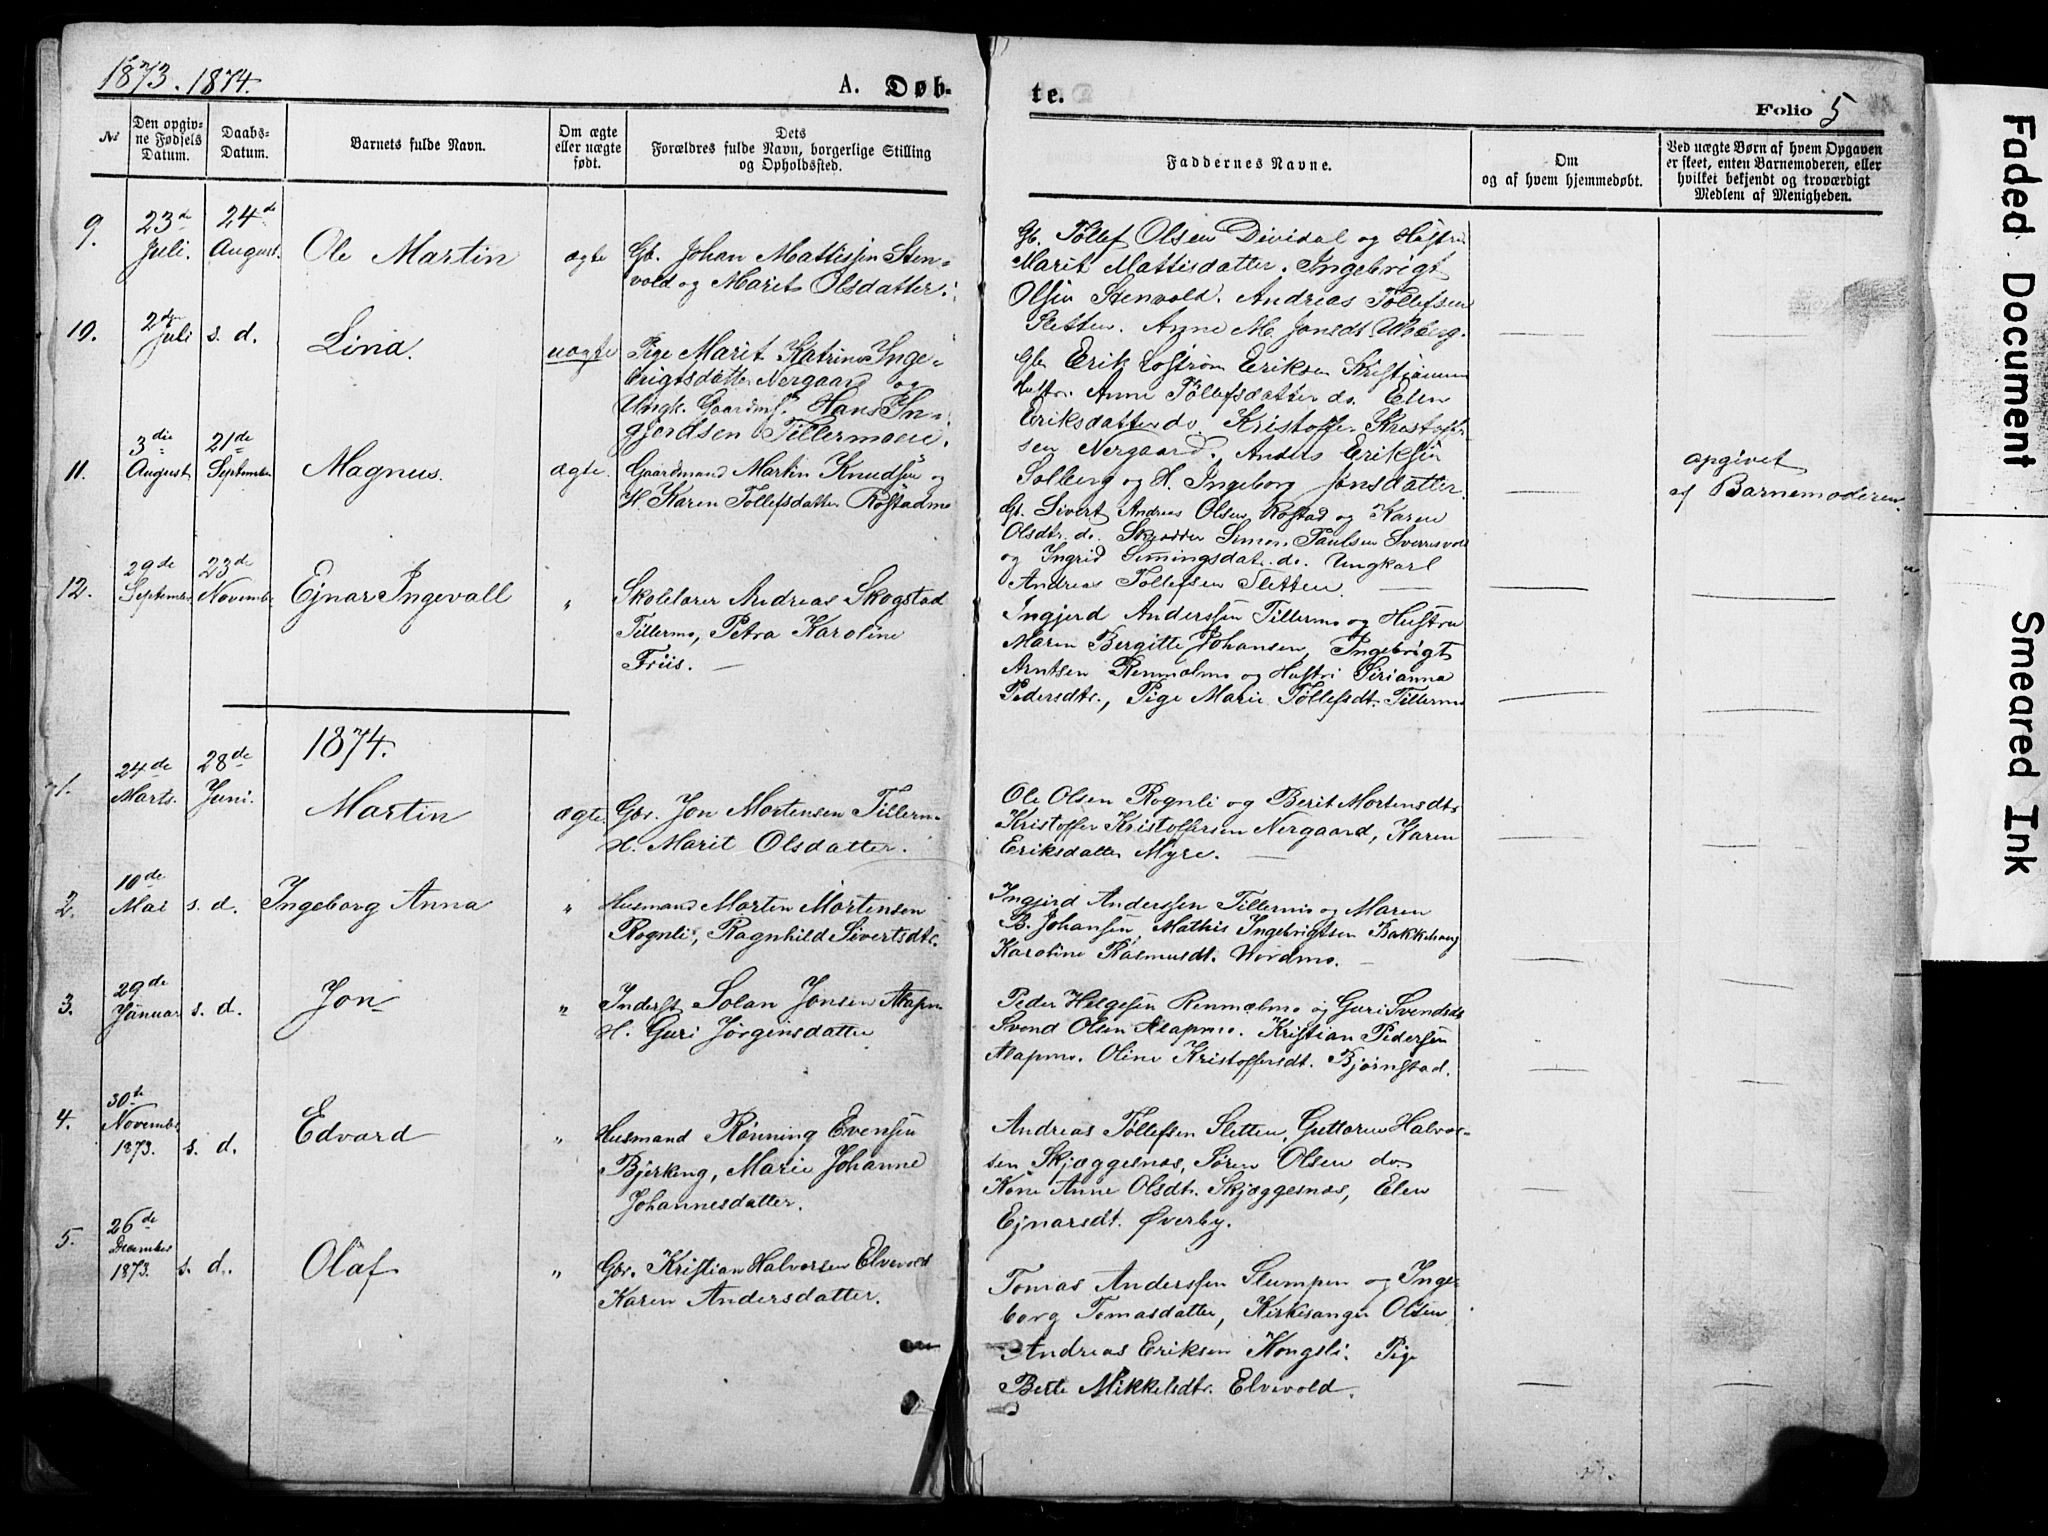 1873. 1874.
A. Døb-
te.
Folio 5
№
Den opgiv-
ne Fødsels
Datum.
Daabs-
Datum.
Barnets fulde Navn.
Om ægte
eller uægte
født.
Dets
Forældres fulde Navn, borgerlige Stilling
og Opholdssted.
Faddernes Navne.
Om
og af hvem hjemmedøbt.
Ved uægte Børn af hvem Opgaven
er skeet, enten Barnemoderen, eller
hvilket bekjendt og troværdigt
Medlem af Menigheden.
9.
23de
Juli.
24de
August.
Ole Martin
ægte
Gb. Johan Mattissen Sten-
vold og Marit Olsdatter.
Gb. Tollef Olsen Dividal og Hustru
Marit Mattisdatter. Ingebrigt
Olsen Stenvold. Andreas Tollefsen
Sletten. Anne M. Jonsdt. Ulsberg.
10.
2den
Juli
s. d.
Lina.
uægte
Pige Marit Katrine Inge-
brigtsdatter Nergaard og
Ungk. Gaardm. Hans In-
gjerdsen Tillermoen.
Gb. Erik Lostrøm Eriksen Kristiansen
Hustr. Anne Tollefsdatter do. Elen
Eriksdatter do. Kristoffer Kristoffer-
sen Nergaard. Anders Eriksen
Solberg og H. Ingeborg Jonsdatter.
opgivet
af Barnemoderen.
11.
3die
August
21de
September
Magnus.
ægte.
Gaardmand Martin Knudsen og
H. Karen Tollefsdatter Rostadmo
Gb. Sivert Andreas Olsen Rostad og Karen
Olsdtr. do. Skrædder Simon Paulsen Sverresvold
og Ingrid Simingsdat. do. Ungkarl
Andreas Tollefsen Sletten.
12.
29de
September
23de
Novembr
Ejnar Ingevall
"
Skolelærer Andreas Skogstad
Tillermo, Petra Karoline
Friis.
Ingjerd Anderssen Tillermo og Hustru
Maren Bergitte Johansen, Ingebrigt
Arntsen Renmælmo og Hustru Sirianna
Pedersdtr., Pige Marie Tollefsdt. Tillermo
1874.
1.
24de
Marts.
28de
Juni.
Martin
ægte.
Gbr. Jon Mortensen Tillermo
H. Marit Olsdatter.
Ole Olsen Rognli og Berit Mortensdtr
Kristoffer Kristoffersen Nergaard, Karen
Eriksdatter Myre.
2.
10de
Mai
s. d.
Ingeborg Anna
"
Husmand Morten Mortensen
Rognli, Ragnhild Sivertsdtr.
Ingjerd Anderssen Tillermo og Maren
B. Johansen, Mathis Ingebrigtsen Bakkehaug
Karoline Rasmusdt. Nordmo.
3.
29de
Januar
s. d.
Jon
"
Inderst Solan Jonsen Alapmo
H. Guri Jørgensdatter.
Peder Helgesen Renmælmo og Guri Svendsdt
Svend Olsen Alapmo. Kristian Pedersen
Alapmo. Oline Kristoffersdt. Bjørnstad.
4.
30te
Novembr
1873.
s. d.
Edvard
"
Husmand Rønning Evensen
Bjerkeng, Marie Johanne
Johannesdatter.
Andreas Tollefsen Sletten, Guttorm Halvor-
sen Skjæggesnæs, Søren Olsen do.
Kone Anne Olsdtr. Skjæggesnæs, Elen
Ejnarsdt. Øverby.
5.
26de
December
1873.
s. d.
Olaf
"
Gbr. Kristian Halvorsen Elvevold
Karen Andersdatter.
Tomas Anderssen Slumpen og Inge-
borg Tomasdatter, Kirkesanger Olsen
Andreas Eriksen Kongsli. Pige
Berte Mikkelsdtr. Elvevold.
Faded Document
Smeared Ink